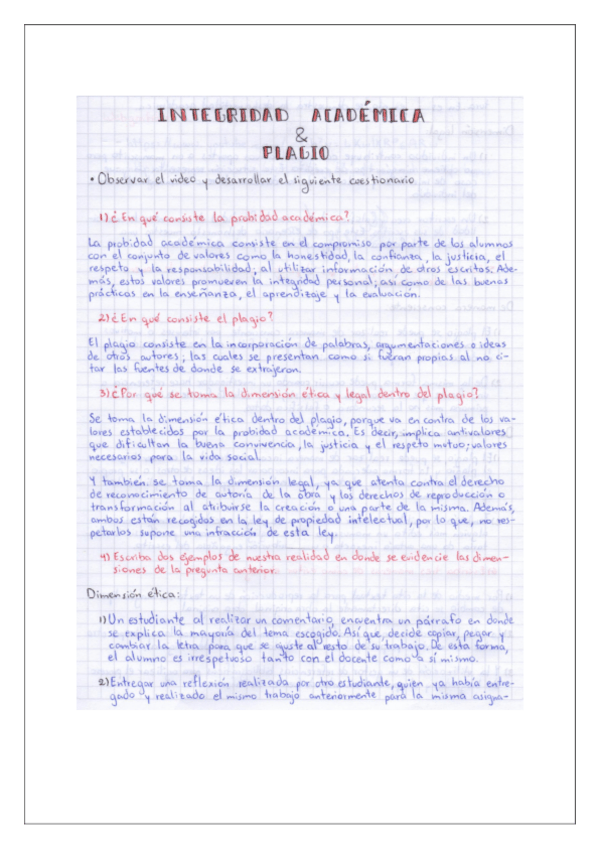 INTEGRIDAD ACADÉMICA
&
PLAGIO
• Observar el video y desarrollar el siguiente cuestionario
1) ¿En qué consiste la probidad académica?
La probidad académica consiste en el compromiso por parte de los alumnos
con el conjunto de valores como la honestidad, la confianza, la justicia, el
respeto y la responsabilidad; al utilizar información de otros escritos. Ade-
más, estos valores promueven la integridad personal; así como de las buenas
prácticas en la enseñanza, el aprendizaje y la evaluación.
2) ¿En qué consiste el plagio?
El plagio consiste en la incorporación de palabras, argumentaciones o ideas
de otros autores, las cuales se presentan como si fueran propias al no ci-
tar las fuentes de donde se extrajeron.
3) ¿Por qué se toma la dimensión ética y legal dentro del plagio?
Se toma la dimensión ética dentro del plagio, porque va en contra de los va-
lores establecidos por la probidad académica. Es decir, implica antivalores
que dificultan la buena convivencia, la justicia y el respeto mutuo; valores
necesarios para la vida social.
Y también se toma la dimensión legal, ya que atenta contra el derecho
de reconocimiento de autoría de la obra y los derechos de reproducción o
transformación al atribuirse la creación o una parte de la misma. Además,
ambos están recogidos en la ley de propiedad intelectual, por lo que, no res-
petarlos supone una infracción de esta ley.
4) Escriba dos ejemplos de nuestra realidad en donde se evidencie las dimen-
siones de la pregunta anterior.
Dimensión ética:
1) Un estudiante al realizar un comentario, encuentra un párrafo en donde
se explica la mayoría del tema escogido. Así que decide copiar, pegar y
cambiar la letra para que se ajuste al resto de su trabajo. De esta forma,
el alumno es irrespetuoso tanto con el docente como a sí mismo.
2) Entregar una reflexión realizada por otro estudiante, quien ya había entre-
gado y realizado el mismo trabajo anteriormente para la misma asigna-